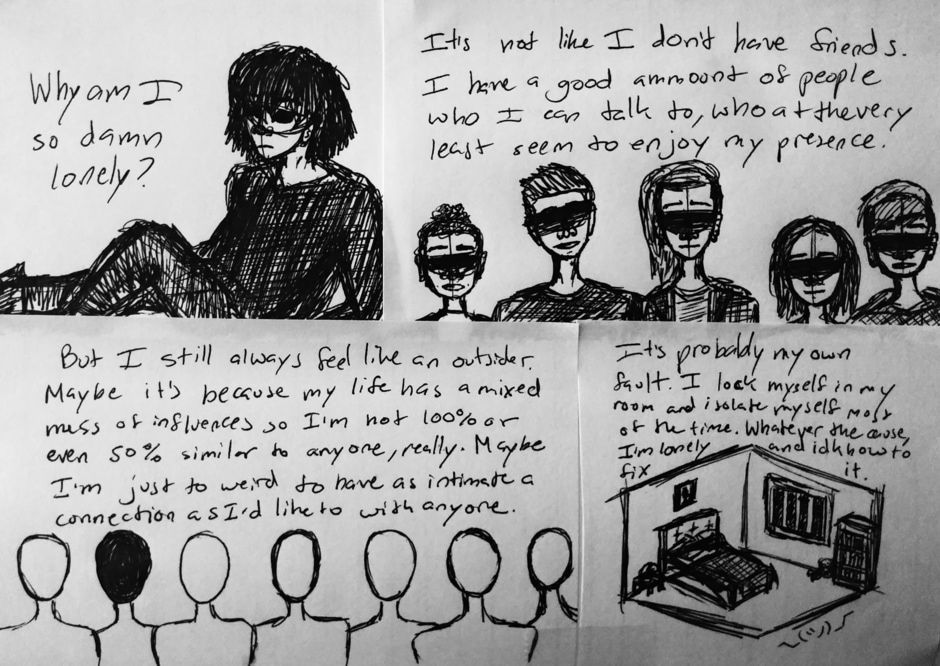 Why am I
so damn
lonely?
It's not like I don't have friends.
I have a good ammount of people
who I can talk to, who at the very
least seem to enjoy my presence.
But I still always feel like an outsider.
Maybe it's because my life has a mixed
mess of influences so I'm not 100% or
even 50% similar to anyone, really. Maybe
I'm just to weird to have as intimate a
connection as I'd like to with anyone.
It's probably my own
fault. I lock myself in my
room and isolate myself most
of the time. Whatever the cause,
I'm lonely and idk how to
fix it.